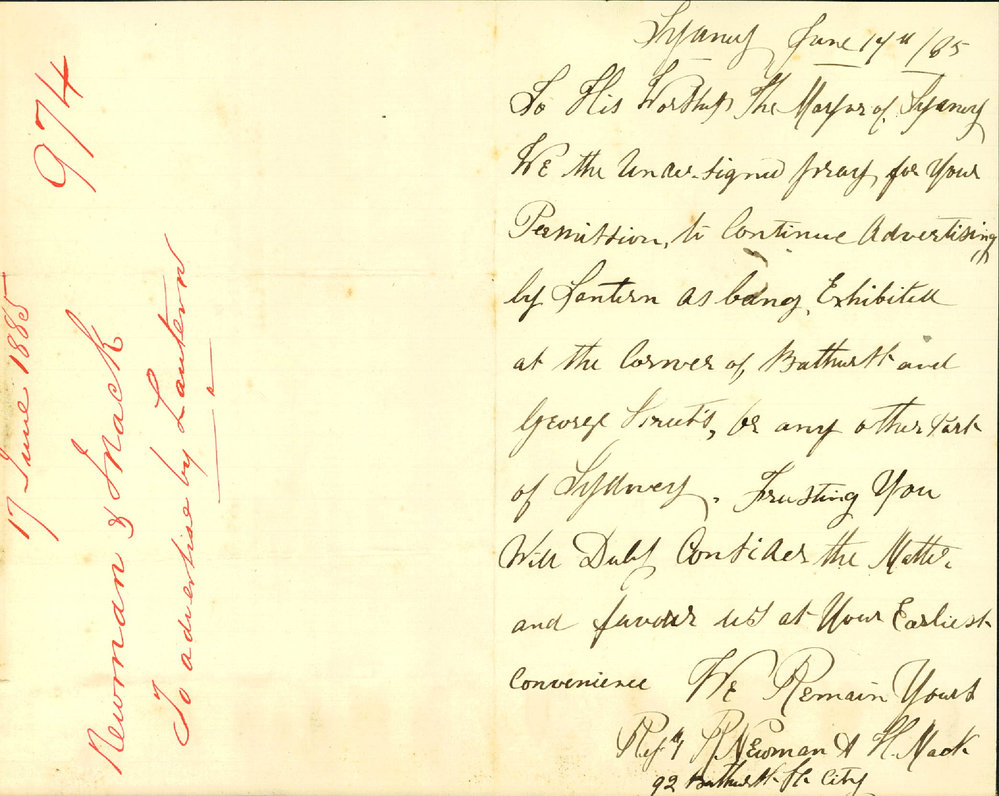 Sydney June 17th /85
To His Worship The Mayor of Sydney
WE the Under-signed pray for Your
Permission, to Continue Advertising
by Lantern as being Exhibited
at the Corner of Bathurst and
George Streets, or any other Part
of Sydney. Trusting You
Will Duly Consider the Matter
and favour us at Your Earliest
Convenience We Remain Yours
R Newman & H. Mack
92 Bathurst St City
974
17 June 1885
Newman & Mack
To advertise by Lantern